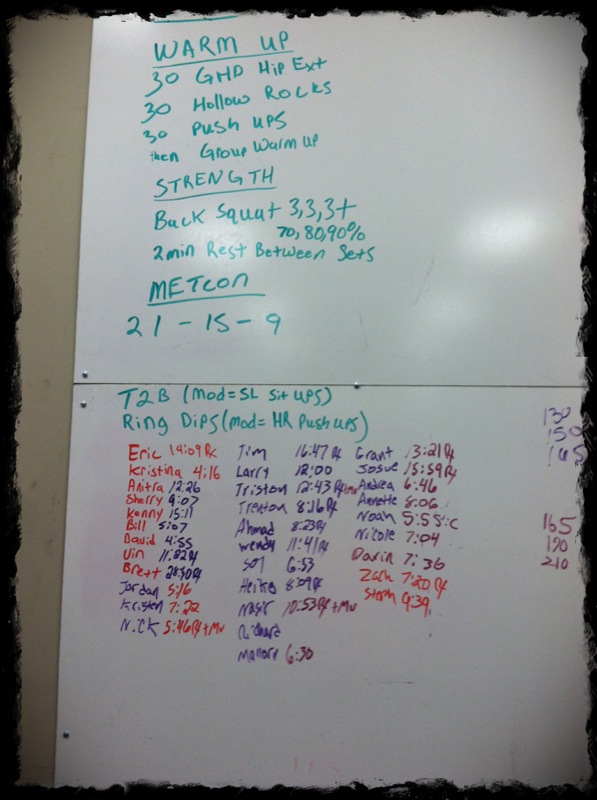 WARM UP
30 GHD Hip Ext
30 Hollow Rocks
30 Push ups
then Group Warm up
STRENGTH
Back Squat 3,3,3+
70,80,90%
2min Rest Between Sets
METCON
21 - 15 - 9
T2B (mod = SL Sit ups)
Ring Dips (mod = HR Push ups)
Eric 14:09 Rx
Kristina 4:16
Anitra 12:26
Sherry 9:07
Kenny 15:11
Bill 5:07
David 4:55
Vin 11:22 Rx
Brett
Jordan 5:16
Kristen 7:22
Nick 5:46 Rx + Mu
Tim 16:47 Rx
Larry 12:00
Tristan 12:43 Rx
Trenton 8:16 Rx
Ahmad 8:23 Rx
Wendy 11:41 Rx
Sol 6:53
8:09 Rx
Nasir 10:53 Rx + Mu
Richard
Mallory 6:30
Grant 13:21 Rx
Josue 15:59 Rx
Andrea 6:46
Annette 8:06
Noah 5:55
Nicole 7:04
Darin 7:36
Zach 7:20 Rx
Steph 9:39
130
150
165
165
190
210